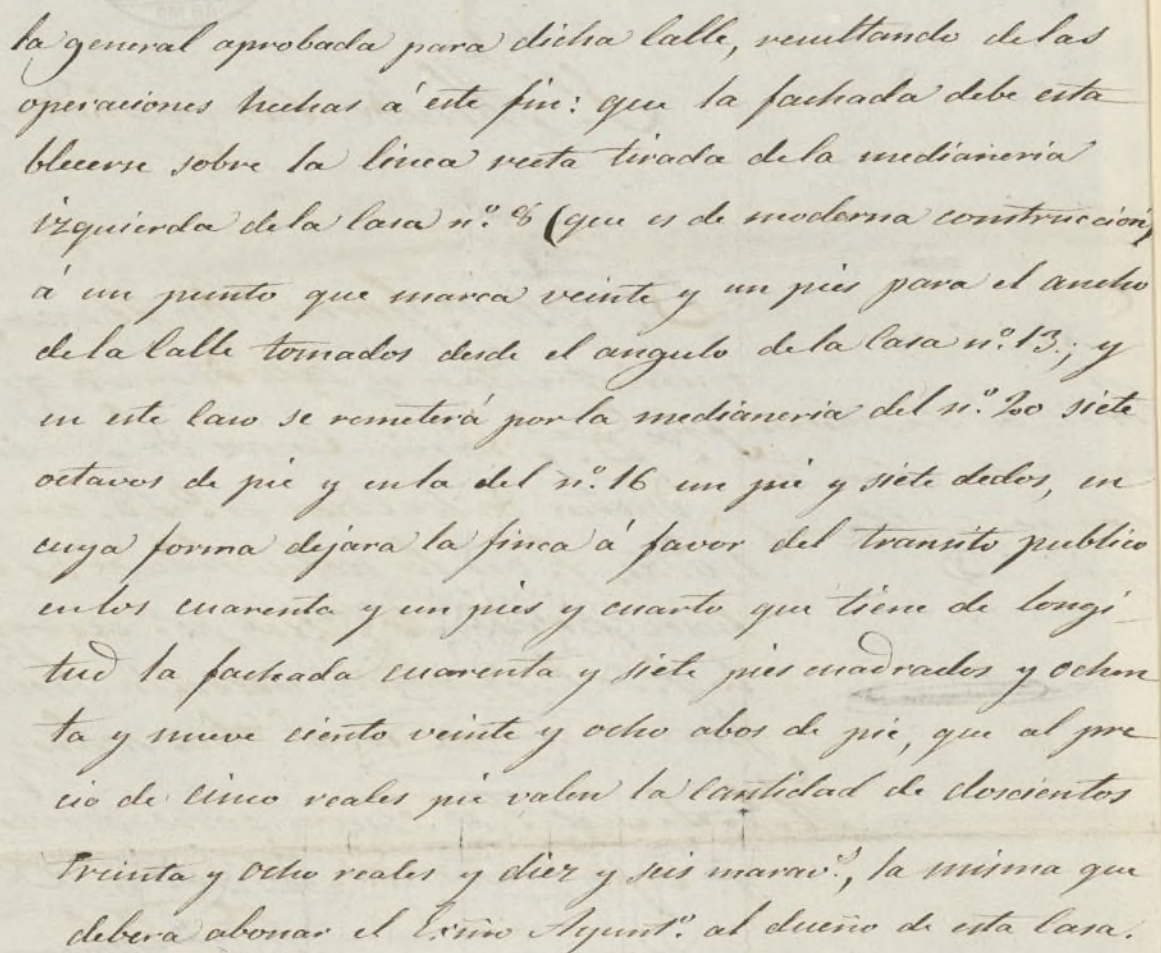 la general aprobada para dicha Calle, resultando de las
operaciones hechas á este fin: que la fachada debe esta
blecerse sobre la linea recta tirada de la medianeria
izquierda de la Casa n.º 8 (que es de moderna construccion)
á un punto que marca veinte y un pies para el ancho
de la Calle tomados desde el angulo de la Casa n.º 13.; y
en este Caso se remeterá por la medianeria del n.º 20 siete
octavos de pie y en la del n.º 16 un pie y siete dedos, en
cuya forma dejara la finca á favor del transito publico
en los cuarenta y un pies y cuarto que tiene de longi
tud la fachada cuarenta y siete pies cuadrados y ochen
ta y nueve ciento veinte y ocho abos de pie, que al pre
cio de cinco reales pie valen la Cantidad de doscientos
treinta y ocho reales y diez y seis marav.s, la misma que
debera abonar el Exmo Ayunt.º al dueño de esta Casa.